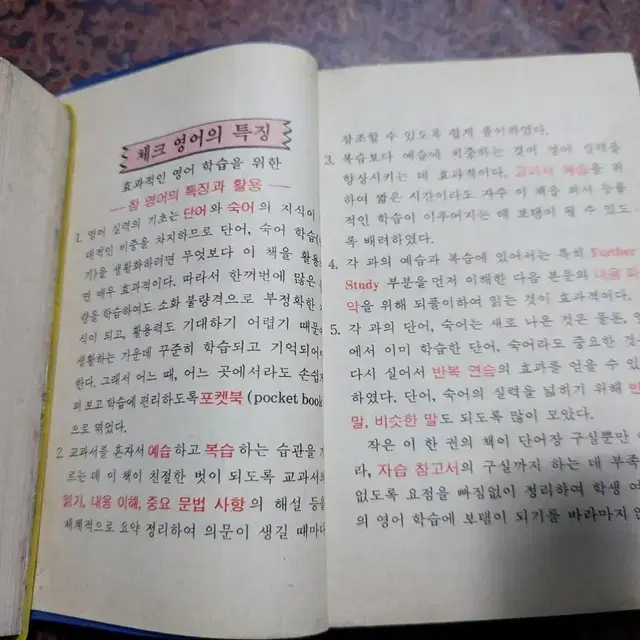 체크 영어의 특징
효과적인 영어 학습을 위한
— 참 영어의 특징과 활용 —
1. 영어 실력의 기초는 단어와 숙어의 지식이
대적인 비중을 차지하므로 단어, 숙어 학습(
기)을 생활화하려면 무엇보다 이 책을 활용
면 매우 효과적이다. 따라서 한꺼번에 많은
량을 학습하여도 소화 불량격으로 부정확한
식이 되고, 활용력도 기대하기 어렵기 때문
생활하는 가운데 꾸준히 학습되고 기억되어
한다. 그래서 어느 때, 어느 곳에서라도 손쉽게
펴 보고 학습에 편리하도록 포켓북 (pocket book
으로 엮었다.
2. 교과서를 혼자서 예습하고 복습하는 습관을 기
르는 데 이 책이 친절한 벗이 되도록 교과서의
읽기, 내용 이해, 중요 문법 사항의 해설 등을
체계적으로 요약 정리하여 의문이 생길 때마다
참조할 수 있도록 쉽게 풀이하였다.
3. 복습보다 예습에 치중하는 것이 영어 실력을
향상시키는 데 효과적이다. 교과서 예습을 위
하여 짧은 시간이라도 자주 이 책을 펴서 능률
적인 학습이 이루어지는 데 보탬이 될 수 있도
록 배려하였다.
4. 각 과의 예습과 복습에 있어서는 특히 Further
Study 부분을 먼저 이해한 다음 본문의 내용 파
악을 위해 되풀이하여 읽는 것이 효과적이다.
5. 각 과의 단어, 숙어는 새로 나온 것은 물론,
에서 이미 학습한 단어, 숙어라도 중요한 것
다시 실어서 반복 연습의 효과를 얻을 수 있
하였다. 단어, 숙어의 실력을 넓히기 위해 반
말, 비슷한 말도 되도록 많이 모았다.
작은 이 한 권의 책이 단어장 구실뿐만
라, 자습 참고서의 구실까지 하는 데 부족
없도록 요점을 빠짐없이 정리하여 학생 여
의 영어 학습에 보탬이 되기를 바라마지 않